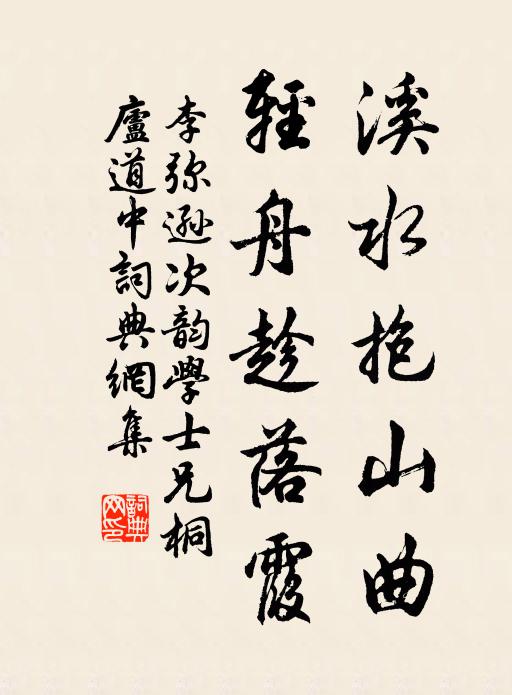 溪水抱山曲
輕舟趁落霞
李弥遜次韵學士兄桐
廬道中詞典網集
詞典
网印